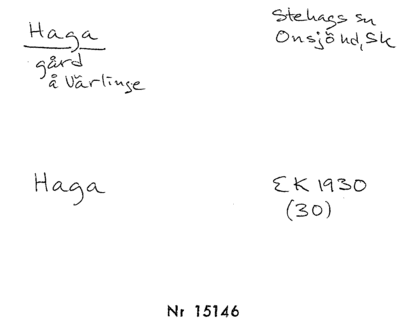 Haga
gård
å Värlinge
Stehags sn
Onsjö hd, Sk
Haga
EK 1930
(30)
Nr 15146